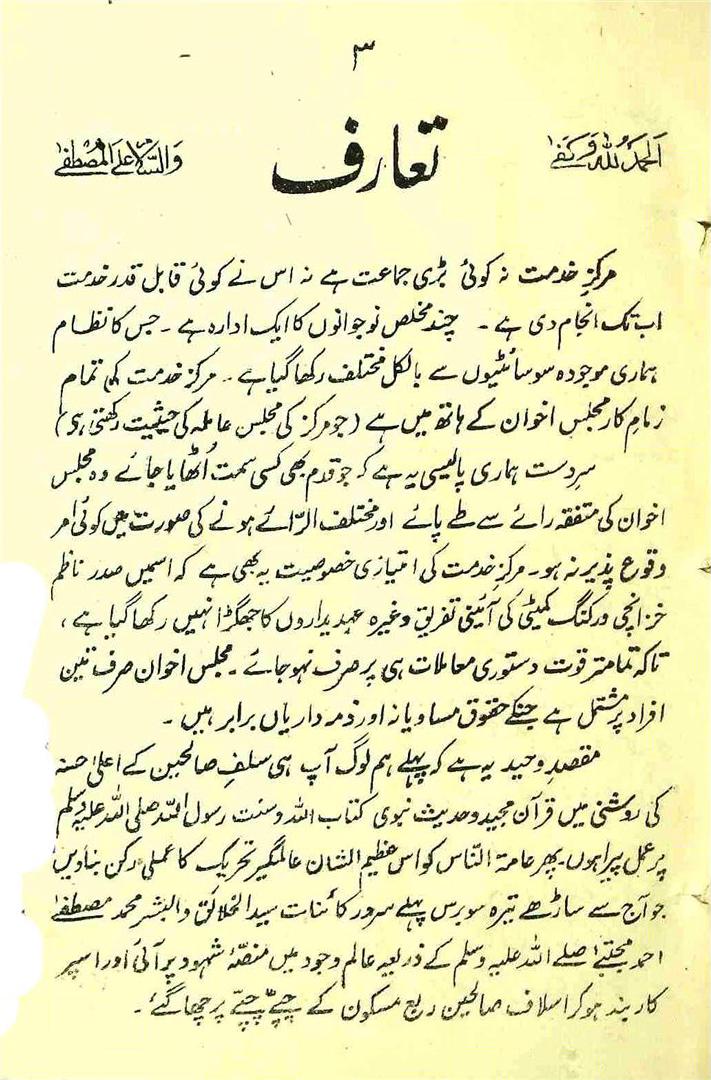 ۳
الحمد للہ وکفیٰ
تعارف
والسلام علی المصطفیٰ
مرکزِ خدمت نہ کوئی بڑی جماعت ہے نہ اس نے کوئی قابل قدر خدمت
اب تک انجام دی ہے ۔ چند مخلص نوجوانوں کا ایک ادارہ ہے ۔ جس کا نظام
ہماری موجودہ سوسائٹیوں سے بالکل مختلف رکھا گیا ہے ۔ مرکز خدمت کی تمام
زمامِ کار مجلس اخوان کے ہاتھ میں ہے (جو مرکز کی مجلس عاملہ کی حیثیت رکھتی ہی)
سرِ دست ہماری پالیسی یہ ہے کہ جو قدم بھی کسی سمت اُٹھایا جائے وہ مجلس
اخوان کی متفقہ رائے سے طے پائے اور مختلف الرّائے ہونے کی صورت میں کوئی امر
وقوع پذیر نہ ہو۔ مرکزِ خدمت کی امتیازی خصوصیت یہ بھی ہے کہ اسمیں صدر ناظم
خزانچی ورکنگ کمیٹی کی آئینی تفریق وغیرہ عہدیداروں کا جھگڑا نہیں رکھا گیا ہے ،
تاکہ تمامتر قوت دستوری معاملات ہی پر صرف نہو جائے ۔ مجلس اخوان صرف تین
افراد پر مشتمل ہے جنکے حقوق مساویانہ اور ذمہ داریاں برابر ہیں ۔
مقصدِ وحید یہ ہے کہ پہلے ہم لوگ آپ ہی سلفِ صالحین کے اعلیٰ حسنہ
کی روشنی میں قرآن مجید و حدیث نبوی کتاب اللہ و سنت رسول اللہ صلی اللہ علیہ وسلم
پر عمل پیرا ہوں۔ پھر عامۃ النّاس کو اس عظیم الشان عالمگیر تحریک کا عملی رکن بنادیں
جو آج سے ساڑھے تیرہ سو برس پہلے سرور کائنات سید الخلائق والبشر محمد مصطفےٰ
احمد مجتبےٰ صلے اللہ علیہ وسلم کے ذریعہ عالم وجود میں منصّۂ شہود پر آئی اور اسپر
کاربند ہو کر اسلاف صالحین ربع مسکون کے چپّے چپّے پر چھا گئے ۔